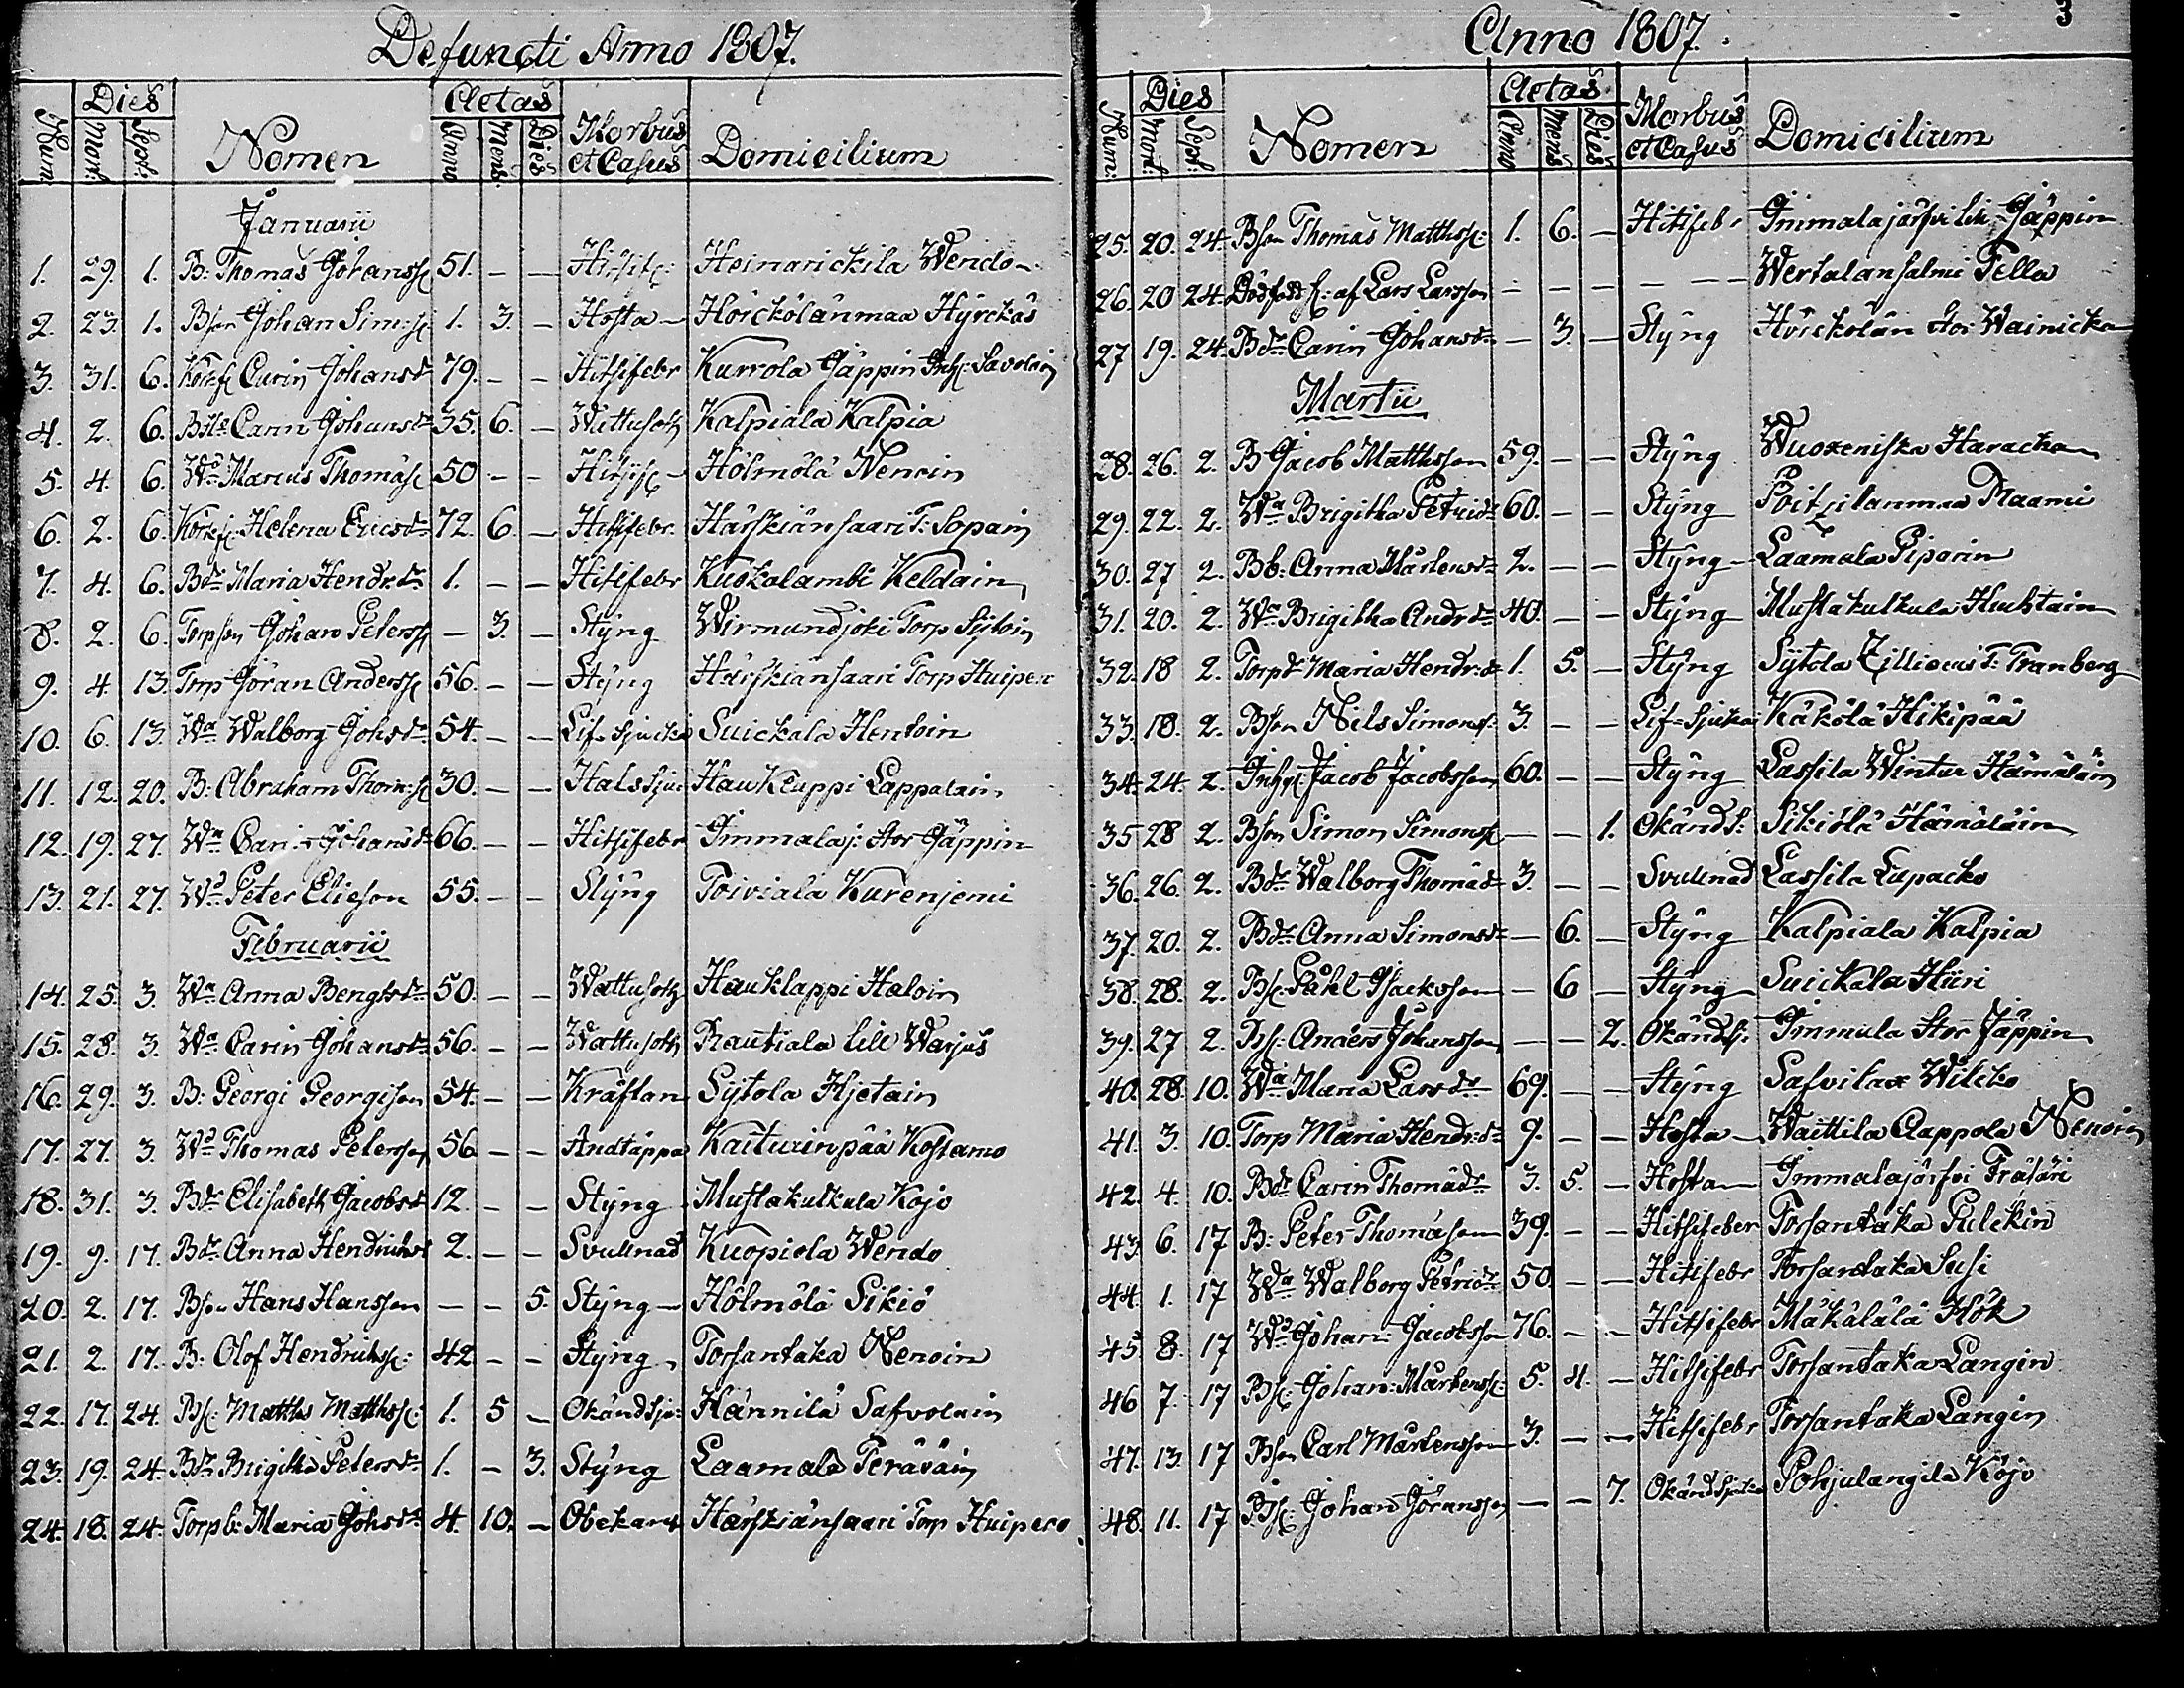 Defuncti Anno 1807.
Num: Dies Mort: Sepb: Nomen Aetas Anno Mens. Dies Morbus et Casus Domicilium
Januarii
1. 29. 1. B: Thomas Johanss: 51. - - Heinarickila Wendo-
2. 23. 1. Bson Johan Sim:s: 1. 3. - Hosta - Höickölänmaa Hyrckäs
3. 31. 6. Carin Johansdr 79. - - Hitsifebr Kurrola Jäppin Inh: Savolain
4. 2. 6. Carin Johansdr 35. 6. - Wattusoth Kalpiala Kalpia
5. 4. 6. Wd: Marcus Thomäs: 50 - - Hölmölä Nenoin
6. 2. 6. Helena Ericsdr 72. 6. - Hitsifebr. Härskiänsaari T: Sopain
7. 4. 6. Bdr Maria Hendr:dr 1. - - Hitsifebr Kuokalambi Keldain
8. 2. 6. Torpson Johan Peterss: - 3. - Styng Wirmundjoki Torp Sytoin
9. 4. 13. Torp Göran Anderss: 56. - - Styng Härskiänsaari Torp Huipero
10. 6. 13. Wa Walborg Johsdr 54. - - Lif-Sjucka Suickala Hentoin
11. 12. 20. B: Abraham Thom:s: 30. - - Halssju: Haukluppi Lappalain
12. 19. 27. Wa Carin Johansdr 66. - - Hitsifebr Immalaj: Stor Jäppin
13. 21. 27. Wd Peter Elieson 55. - - Styng Toiviala Kurenjemi
Februarii
14. 25. 3. Wa Anna Bengtsdr 50. - - Wattusoth Hauklappi Haloin
15. 28. 3. Wa Carin Johansdr 56. - - Wattusoth Rautiala lill Warjus
16. 29. 3. B: Georgi Georgison 54. - - Kräftan Sytola Hjetain
17. 27. 3. Wd Thomas Peterson 56 - - Andtäppa Kaiturinpää Kostamo
18. 31. 3. Bdr Elisabeth Jacobsdr 12. - - Styng Mustakulkula Kojo
19. 9. 17. Bdr Anna Hendrichsdr 2. - - Svullnad Kuopiola Wendo
20. 2. 17. Bson Hans Hansson - - 5. Styng - Hölmölä Sikiö
21. 2. 17. B: Olof Hendrichss: 42 - - Styng Torsantaka Nenoin
22. 17. 24. Bs: Matths Matthss: 1. 5 - Okändsju: Hännilä Safvolain
23. 19. 24. Bdr Brigitha Petersdr 1. - 3. Styng Laamala Peräväin
24. 18. 24. Torpb: Maria Johsdr 4. 10. - Obekant Härskiänsaari Torp Huipero
3
Anno 1807.
Num: Dies Mort: Sepb: Nomen Aetas Anno Mens Dies Morbus et Casus Domicilium
25. 20. 24. Bson Thomas Matthss: 1. 6. - Hitsifebr Immalajärfvi lill Jäppin
26. 20 24. Dödfödd s: af Lars Larsson - - - - - Wertalansalmi Tella
27 19. 24. Bdr Carin Johansdr - 3. - Styng Höickölän Stor Wainicka
Martii
28. 26. 2. B Jacob Matthsson 59. - - Styng Wuoxeniska Haracka
29. 22. 2. Wa Brigitha Petridr 60. - - Styng Poitzilanmaa Raami
30. 27 2. Bb: Anna Mårtensdr 2. - - Styng - Laamala Piparin
31. 20. 2. Wa Brigitha Andrsdr 40. - - Styng Mustakulkula Huhtain
32. 18 2. Torpdr Maria Hendr:dr 1. 5. - Styng Sytola Zilliacus T: Tranberg
33. 18. 2. Bson Nils Simons: 3. - - Lif-Sjuka Käkölä Hikipää
34. 24. 2. Inhys: Jacob Jacobsson 60. - - Styng Lassila Winter Hämäläin
35 28 2. Bson Simon Simons: - - 1. Okänd S: Sikiölä Hämäläin
36. 26. 2. Bdr Walborg Thomädr 3. - - Svullnad Lassila Lupacko
37. 20. 2. Bdr Anna Simonsdr - 6. - Styng Kalpiala Kalpia
38. 28. 2. Bs: Påhl Isacksson - 6 - Styng Suickala Hiiri
39. 27 2. Bs: Anders Johansson - - 2. Okänds: Immala Stor Jäppin
40. 28. 10. Wa Maria Larsdr 69. - - Styng Safvilax Wilcko
41. 3. 10. Torp Maria Hendr:dr 9. - - Hosta - Waittila Lappola Nenoin
42. 4. 10. Bdr Carin Thomädr 3. 5. - Hosta - Immalajärfvi Träsäri
43. 6. 17 B: Peter Thomäson 39. - - Hitsifeber Torsantaka Pulckin
44. 1. 17 Wa Walborg Petridr 50. - - Hitsifebr Torsantaka Susi
45. 8. 17 Wd Johan: Jacobsson 76. - - Hitsifebr Mäkälälä Hök
46 7. 17 Bs: Johan: Mårtenss: 5. 4. - Hitsifebr Torsantaka Langin
47. 13. 17 Bson Carl Mårtensson 3. - - Hitsifebr Torsantaka Langin
48. 11. 17 Bs: Johan Göransson - - 7. Okändsjuka Pohjulangila Kojo